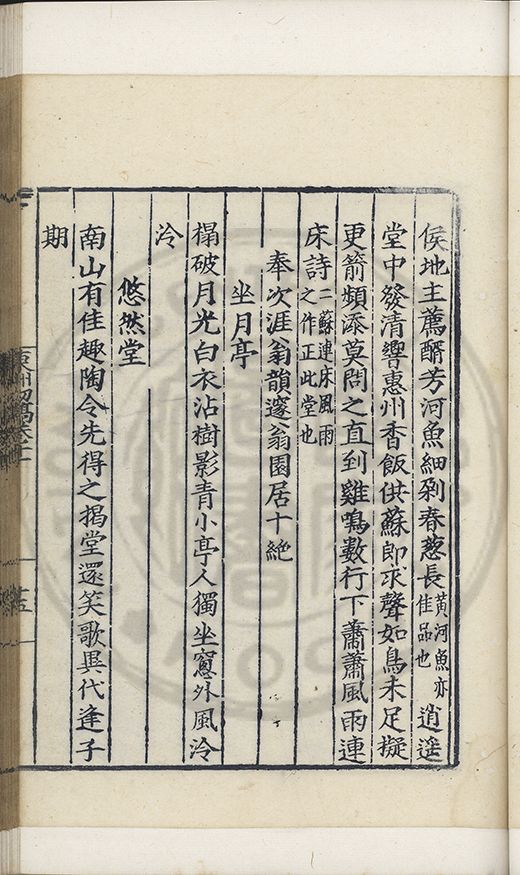 侯地主薦醑芳河魚細剁春葱長黃河魚亦佳品也逍遥
堂中發清響惠州香飯供蘇郎求聲如鳥未足擬
更箭頻添莫問之直到雞鳴數行下蕭蕭風雨連
床詩二蘇連床風雨之作正此堂也
奉次涯翁韻邃翁園居十絶
坐月亭
榻破月光白衣沾樹影青小亭人獨坐窓外風泠
泠
悠然堂
南山有佳趣陶令先得之揭堂還笑歌異代逢子
期